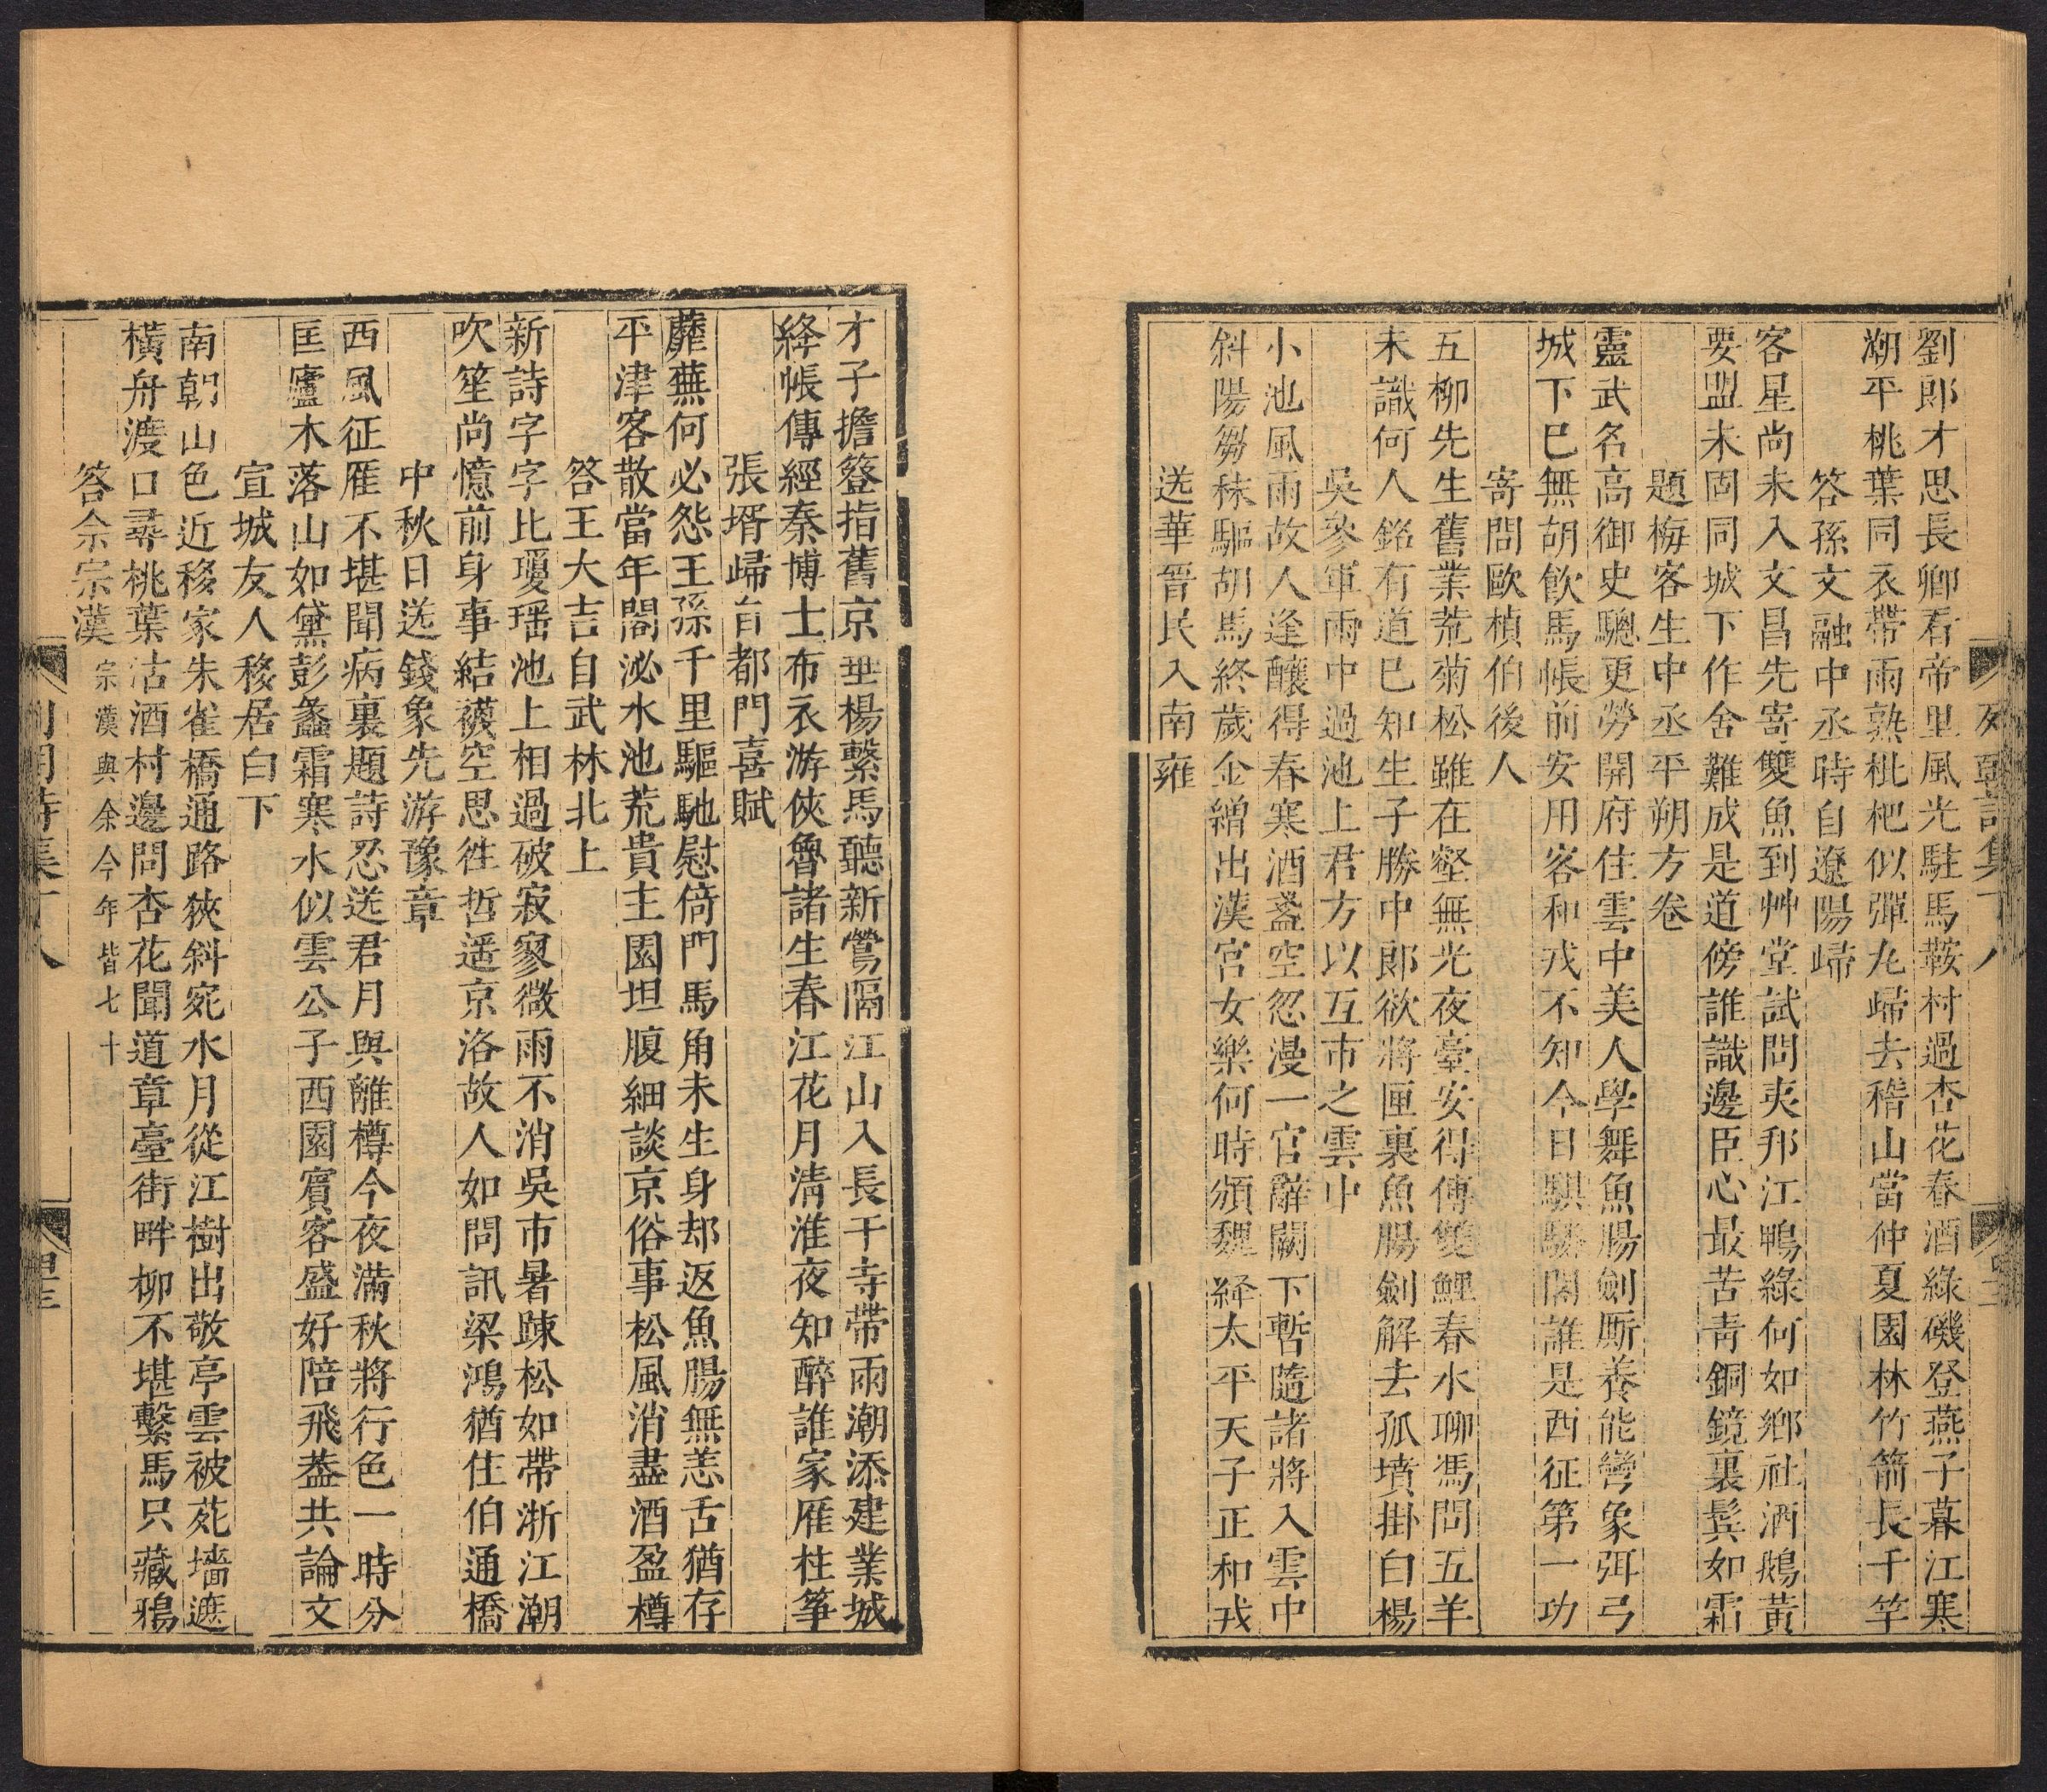 劉郎才思長卿看帝里風光駐馬鞍村過杏花春酒綠磯登燕子暮江寒
潮平桃葉同衣帶雨熟枇杷似彈丸歸去稽山當仲夏園林竹箭長千竿
答孫文融中丞時自遼陽歸
客星尚未入文昌先寄雙魚到艸堂試問夷邦江鴨綠何如鄉社酒鵝黃
要盟未固同城下作舍難成是道傍誰識邊臣心最苦青銅鏡裏鬂如霜
題梅客生中丞平朔方卷
靈武名高御史驄更勞開府住雲中美人學舞魚腸劍厮養能彎象弭弓
城下巳無胡飲馬帳前安用客和戎不知今日騏驎閣誰是西征第一功
寄問歐楨伯後人
五柳先生舊業荒菊松雖在壑無光夜臺安得傳雙鯉春水聊馮問五羊
未識何人銘有道巳知生子勝中郎欲將匣裏魚腸劍解去孤墳掛白楊
吳參軍雨中過池上君方以互市之雲中
小池風雨故人逢釀得春寒酒盞空忽漫一官辭闕下暫隨諸將入雲中
斜陽芻秣驅胡馬終歲金繒出漢宮女樂何時頒魏絳太平天子正和戎
送華晉民入南雍
才子擔簦指舊京垂楊繫馬聽新鶯隔江山入長干寺帶雨潮添建業城
絳帳傳經秦博士布衣游俠魯諸生春江花月淸淮夜知醉誰家雁柱箏
張壻歸自都門喜賦
蘼蕪何必怨王孫千里驅馳慰倚門馬角未生身却返魚腸無恙舌猶存
平津客散當年閤泌水池荒貴主園坦腹細談京俗事松風消盡酒盈樽
答王大吉自武林北上
新詩字字比瓊瑤池上相過破寂寥微雨不消吳市暑踈松如帶浙江潮
吹笙尚憶前身事結襪空思徃哲遥京洛故人如問訊梁鴻猶住伯通橋
中秋日送錢象先游豫章
西風征雁不堪聞病裏題詩忍送君月與離樽今夜滿秋將行色一時分
匡廬木落山如黛彭蠡霜寒水似雲公子西園賓客盛好陪飛葢共論文
宣城友人移居白下
南朝山色近移家朱雀橋通路狹斜宛水月從江樹出敬亭雲被苑墻遮
橫舟渡口尋桃葉沽酒村邊問杏花聞道章臺街畔柳不堪繫馬只藏鴉
答佘宗漢宗漢與余今年皆七十